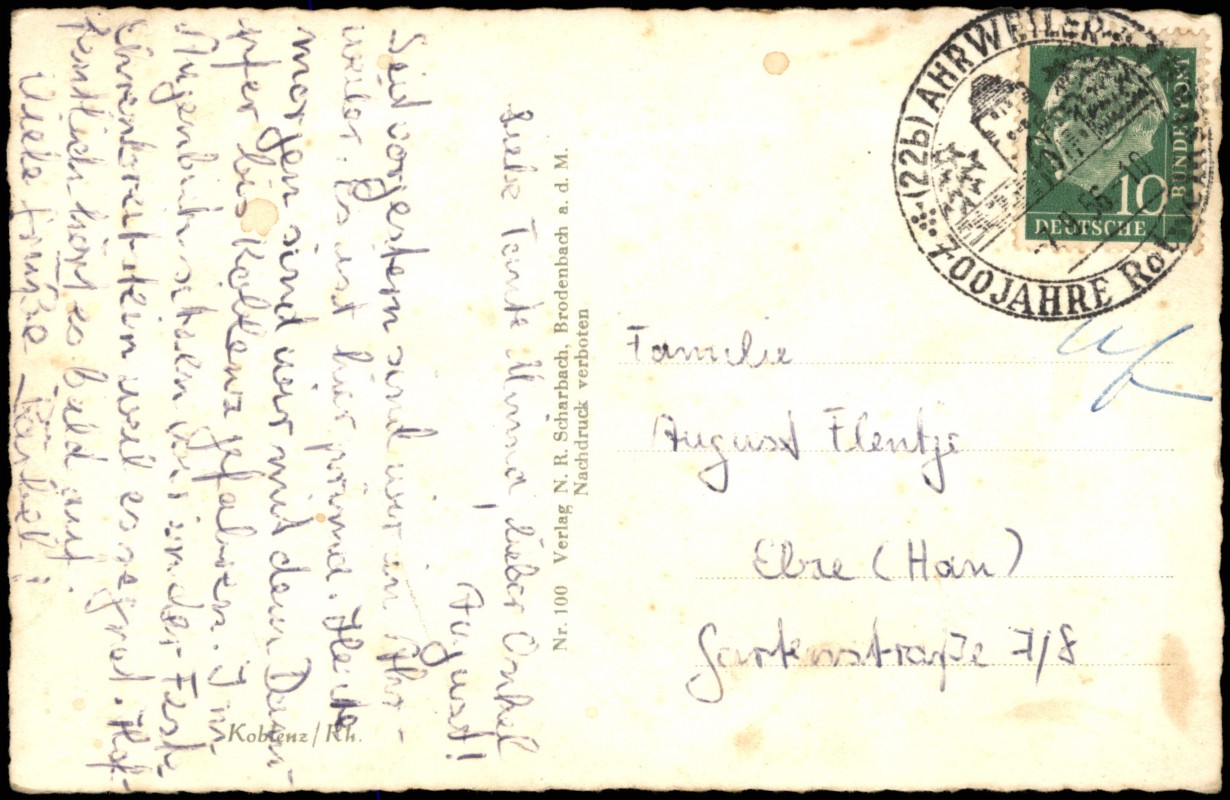 Liebe Tante Minna, lieber Onkel
August!
Seit vorgestern sind wir in Ahr-
weiler. Es ist hier prima. Heute
morgen sind wir mit dem Dam-
pfer bis Koblenz gefahren. Im
Augenblick sitzen wir in der Fest.
Ehrenbreitstein weil es regnet. Hof-
fentlich hört es bald auf.
Viele Grüße
Koblenz/Rh.
Nr. 100 Verlag N. R. Scharbach, Brodenbach a. d. M.
Nachdruck verboten
(22b) AHRWEILER
700 JAHRE
56-10
10
DEUTSCHE
BUNDESPOST
Familie
August Flentje
Elze (Han)
Gartenstraße 7/8